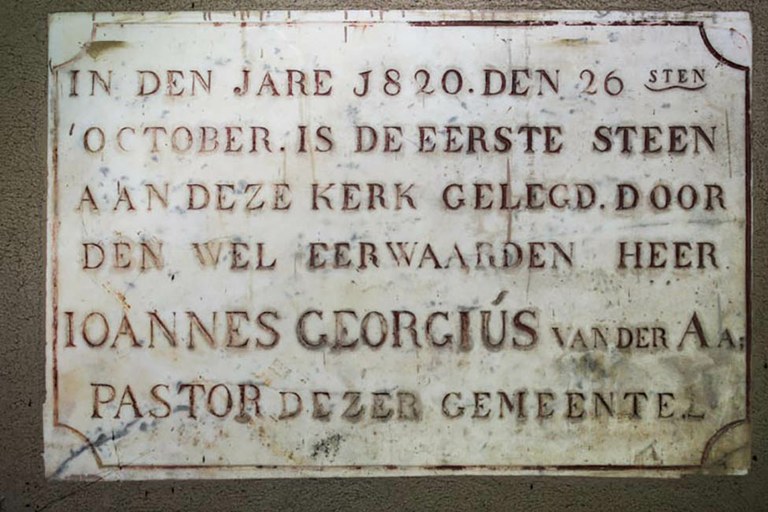 IN DEN JARE J820. DEN 26 STEN
'OCTOBER. IS DE EERSTE STEEN
AAN DEZE KERK GELEGD. DOOR
DEN WEL EERWAARDEN HEER
IOANNES GEORGIÚS VAN DER AA;
PASTOR DEZER GEMEENTE.